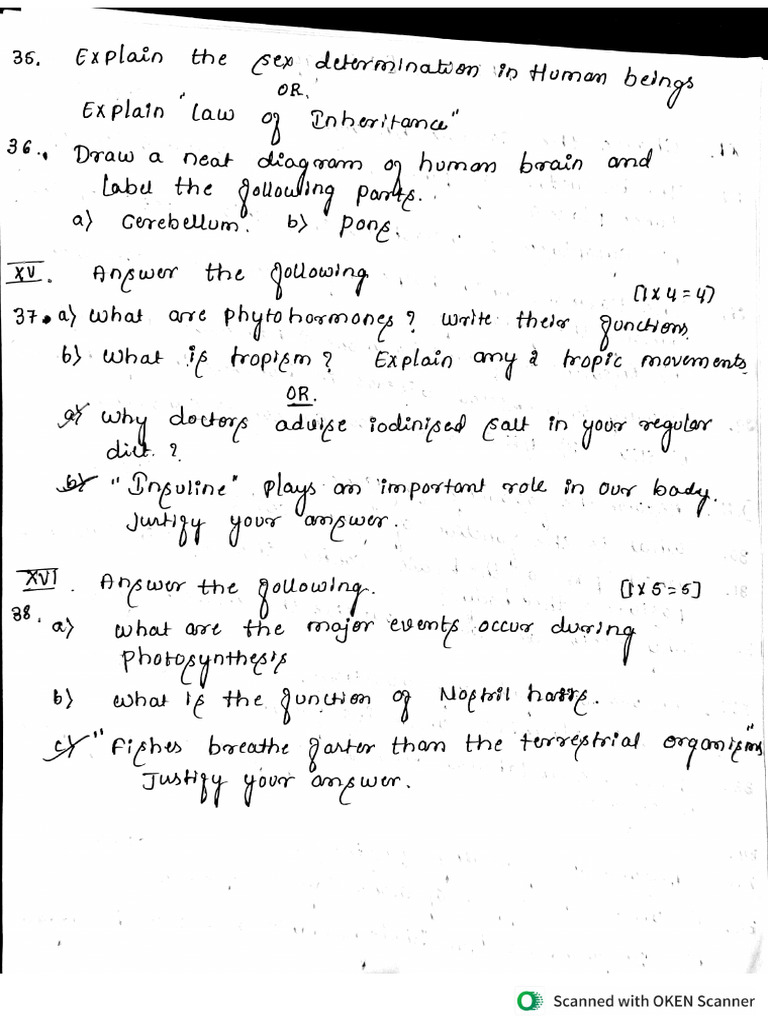 35. Explain the sex determination in Human beings
OR.
Explain "Law of Inheritance"
36. Draw a neat diagram of human brain and
Label the following parts.
a) Cerebellum. b) Pons.
XV. Answer the following
[1 x 4 = 4]
37. a) What are phytohormones? Write their functions.
b) What is tropism? Explain any 2 tropic movements.
OR.
a) Why doctors advise iodinised salt in your regular
diet.?
b) "Insuline" plays an important role in our body.
Justify your answer.
XVI. Answer the following.
[1 x 5 = 5]
38. a) What are the major events occur during
photosynthesis
b) What is the function of Nostril hairs.
c) "Fishes breathe faster than the terrestrial organisms"
Justify your answer.
Scanned with OKEN Scanner